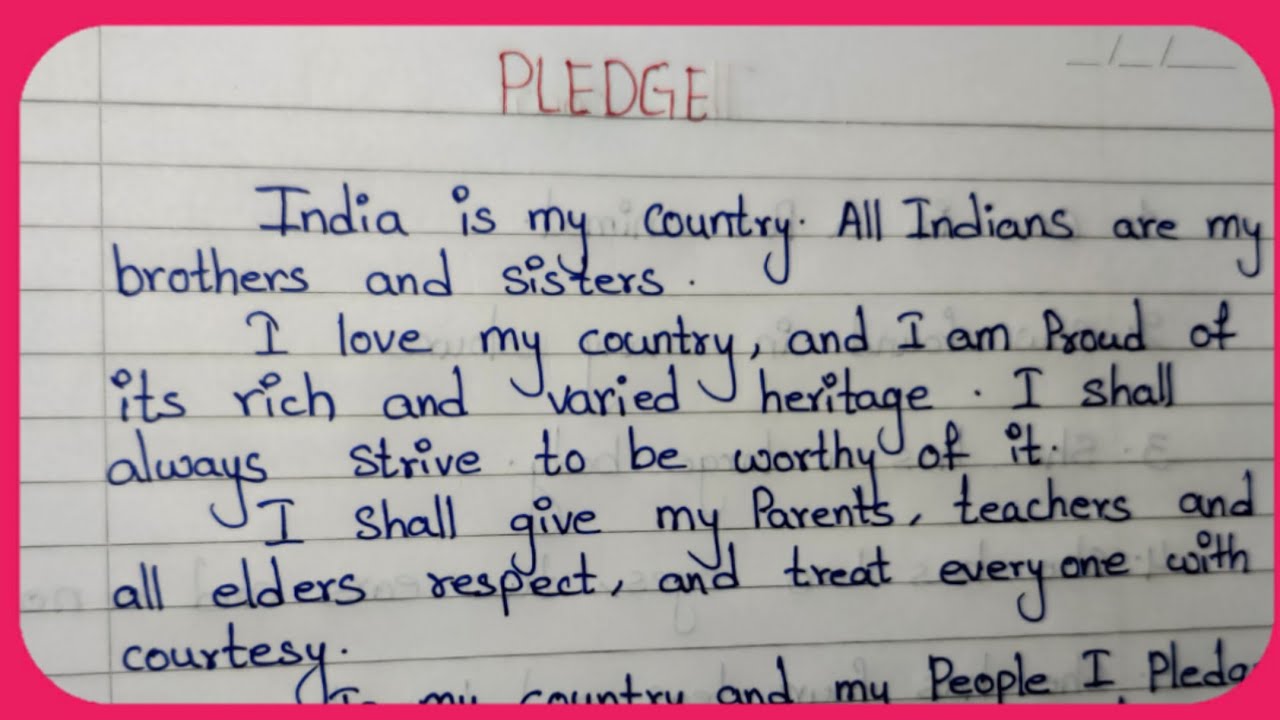 PLEDGE
India is my country. All Indians are my
brothers and sisters.
I love my country, and I am Proud of
its rich and varied heritage. I shall
always strive to be worthy of it.
I shall give my Parents, teachers and
all elders respect, and treat everyone with
courtesy.
To my country and my People I Pledge